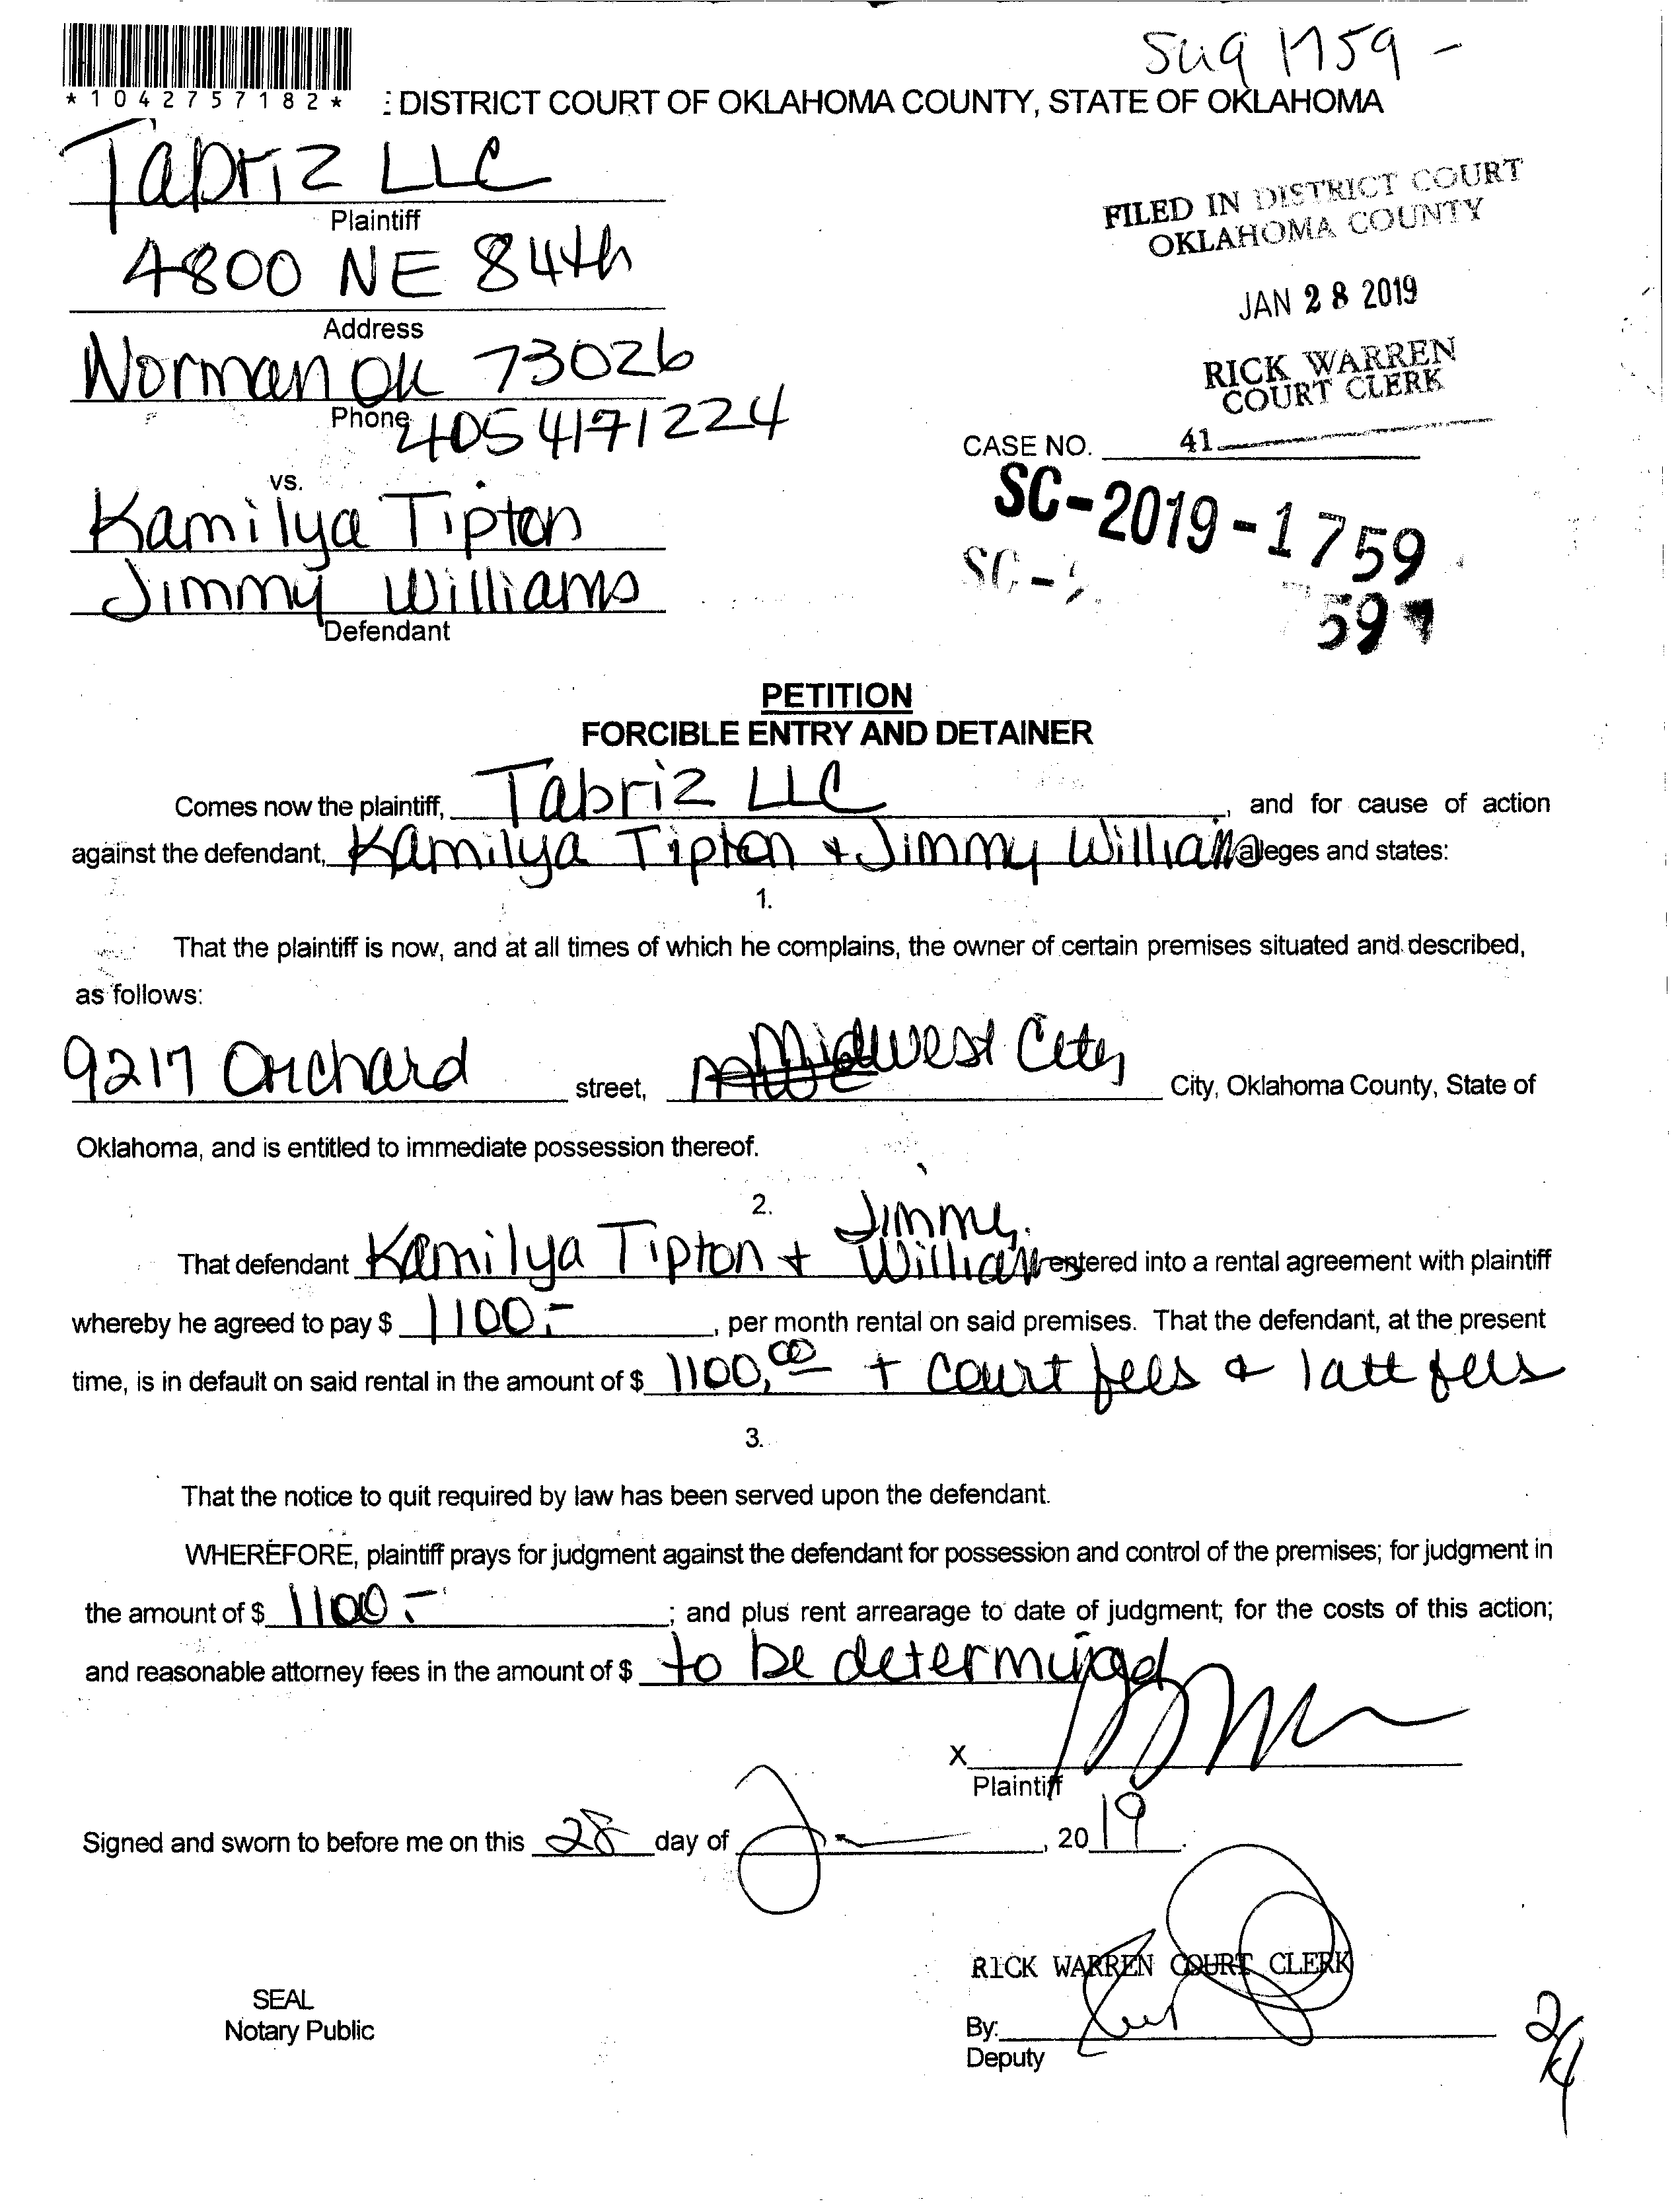 *1042757182*
: DISTRICT COURT OF OKLAHOMA COUNTY, STATE OF OKLAHOMA
Tabriz LLC
Plaintiff
4800 NE 84th
Address
Norman OK 73026
Phone 405 4171224
vs.
Kamilya Tipton
Jimmy Williams
Defendant
FILED IN DISTRICT COURT
OKLAHOMA COUNTY
JAN 28 2019
RICK WARREN
COURT CLERK
CASE NO. 41
SC-2019-1759
SC-
59
PETITION
FORCIBLE ENTRY AND DETAINER
Comes now the plaintiff, Tabriz LLC, and for cause of action
against the defendant, Kamilya Tipton + Jimmy Williams alleges and states:
1.
That the plaintiff is now, and at all times of which he complains, the owner of certain premises situated and described,
as follows:
9217 Orchard street, Midwest City City, Oklahoma County, State of
Oklahoma, and is entitled to immediate possession thereof.
2.
That defendant Kamilya Tipton + Jimmy Williams entered into a rental agreement with plaintiff
whereby he agreed to pay $ 1100.-, per month rental on said premises. That the defendant, at the present
time, is in default on said rental in the amount of $ 1100.00 + court fees & late fees
3.
That the notice to quit required by law has been served upon the defendant.
WHEREFORE, plaintiff prays for judgment against the defendant for possession and control of the premises; for judgment in
the amount of $ 1100.-; and plus rent arrearage to date of judgment; for the costs of this action;
and reasonable attorney fees in the amount of $ to be determined
X
Plaintiff
Signed and sworn to before me on this 28 day of , 2019.
RICK WARREN COURT CLERK
SEAL
Notary Public
By:
Deputy
2/4